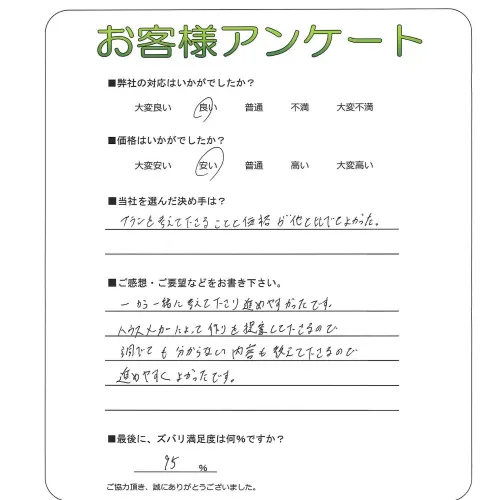 お客様アンケート
■弊社の対応はいかがでしたか?
大変良い 良い 普通 不満 大変不満
■価格はいかがでしたか?
大変安い 安い 普通 高い 大変高い
■当社を選んだ決め手は?
プランを考えて下さることと価格が他と比べてよかった。
■ご感想・ご要望などをお書き下さい。
一から一緒に考えて下さり進めやすかったです。
ハウスメーカーによって作りも提案して下さるので
調べても分からない内容も教えて下さるので
進めやすくよかったです。
■最後に、ズバリ満足度は何%ですか?
95 %
ご協力頂き、誠にありがとうございました。